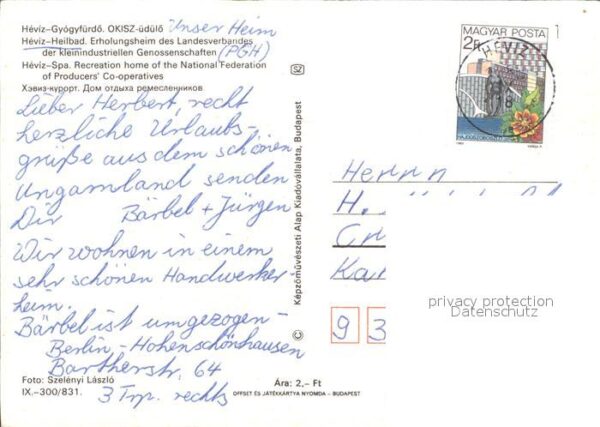 Hévíz–Gyógyfürdő. OKISZ-üdülő Unser Heim
Hévíz–Heilbad. Erholungsheim des Landesverbandes (PGH)
der kleinindustriellen Genossenschaften
Hévíz–Spa. Recreation home of the National Federation
of Producers' Co-operatives
Хэвиз-курорт. Дом отдыха ремесленников
Lieber Herbert, recht
herzliche Urlaubs-
grüße aus dem schönen
Ungarnland senden
Dir Bärbel + Jürgen
Wir wohnen in einem
sehr schönen Handwerker-
heim.
Bärbel ist umgezogen -
Berlin - Hohenschönhausen
Bartherstr. 64
3 Trp. rechts
Foto: Szelényi László
IX.–300/831.
Ára: 2,– Ft
OFFSET ÉS JÁTÉKKÁRTYA NYOMDA – BUDAPEST
© Képzőművészeti Alap Kiadóvállalata, Budapest
MAGYAR POSTA
2Ft
HÉVÍZ
HAJDÚSZOBOSZLÓ
Herrn
H.
Ka
9 3
privacy protection
Datenschutz